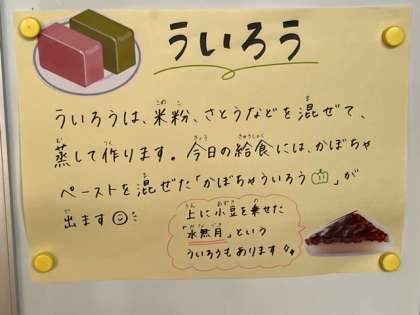 ういろう
ういろうは、米粉、さとうなどを混ぜて、
蒸して作ります。今日の給食には、かぼちゃ
ペーストを混ぜた「かぼちゃういろう」が
出ます
上に小豆を乗せた
「水無月」という
ういろうもあります